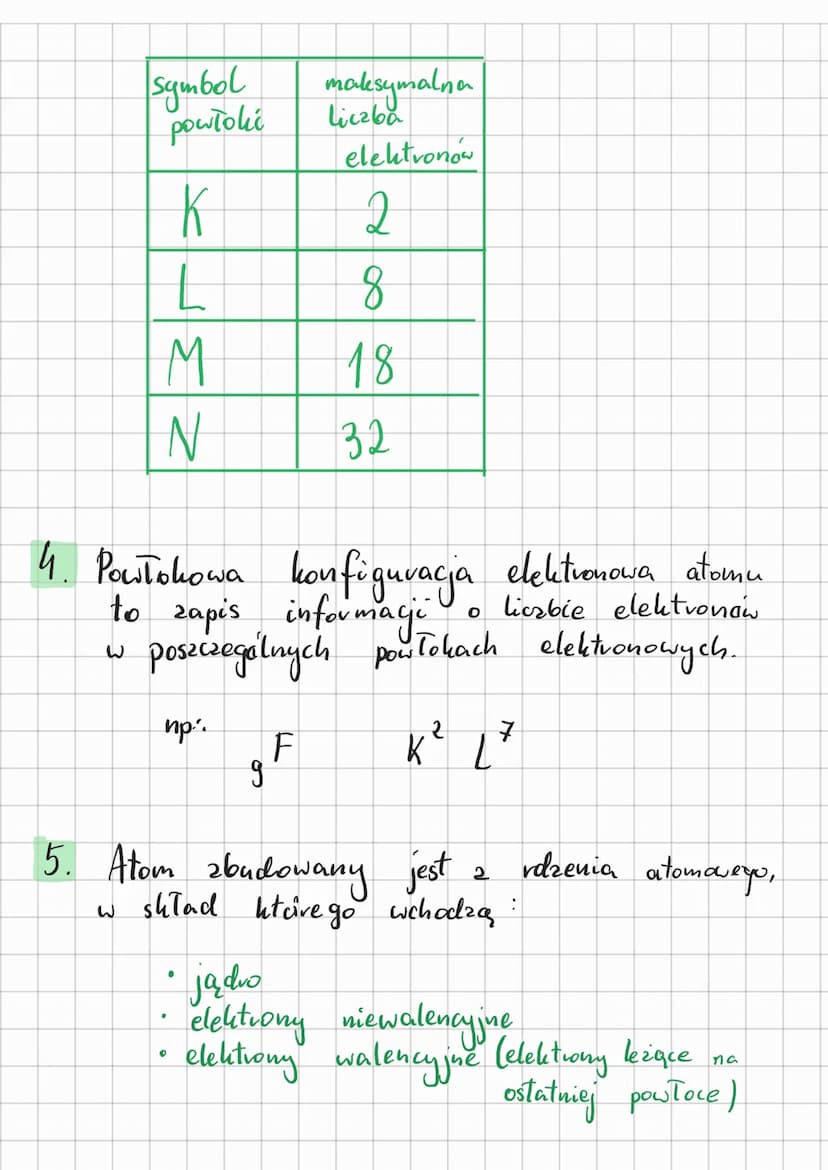 symbol powłoki
maksymalna liczba elektronów
K 2
L 8
M 18
N 32
4. Powłokowa konfiguracja elektronowa atomu
to zapis informacji o liczbie elektronów
w poszczególnych powłokach elektronowych.
np.:
₉F K² L⁷
5. Atom zbudowany jest z rdzenia atomowego,
w skład którego wchodzą:
• jądro
• elektrony niewalencyjne
• elektrony walencyjne (elektrony leżące na
ostatniej powłoce)